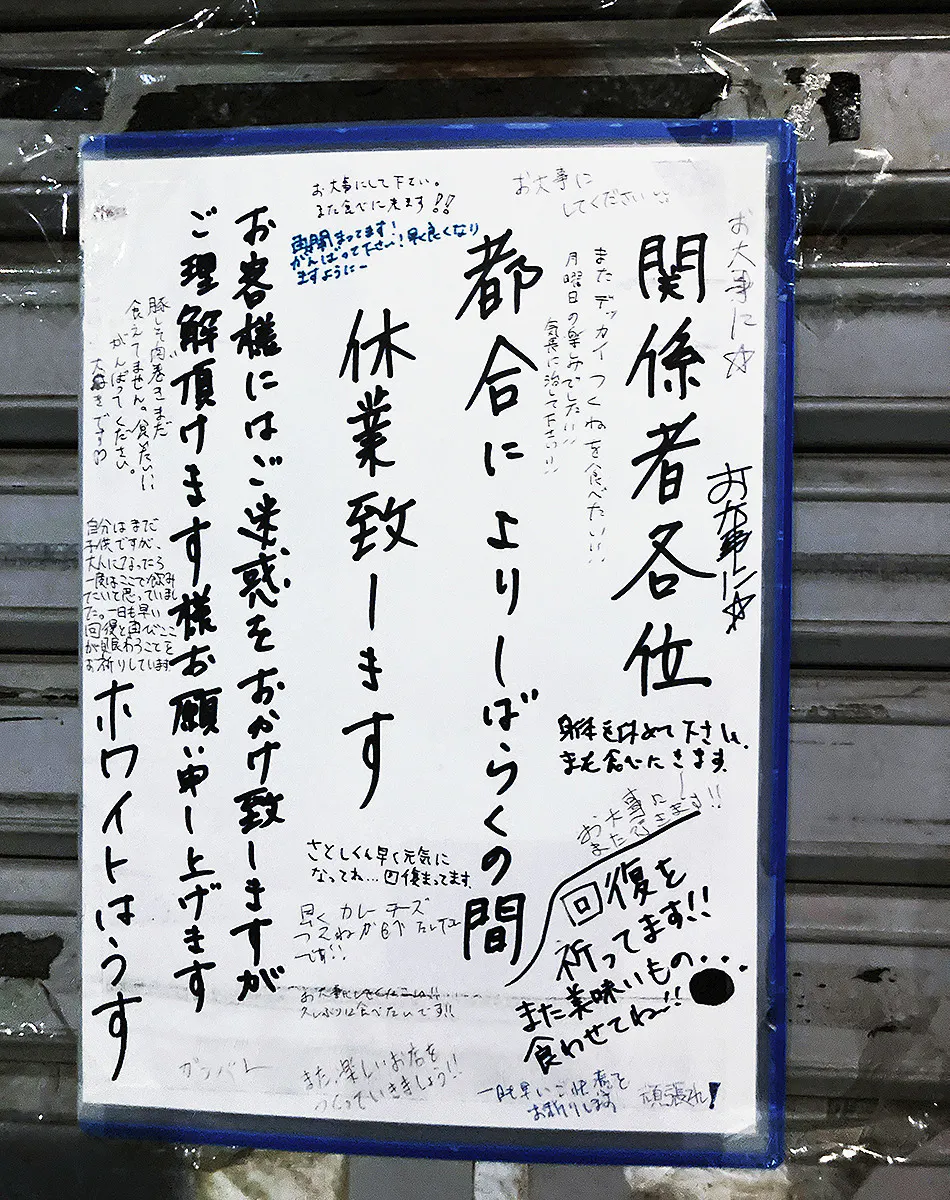 関係者各位
都合によりしばらくの間
休業致します
お客様にはご迷惑をおかけ致しますが
ご理解頂けます様お願い申し上げます
ホワイトはうす
お大事に☆
お大事に☆
お大事に
してください
またデッカイつくねを食べたい!!
月曜日の楽しみでした!!
気長に治して下さい!!
お大事にして下さい。
また食べに来ます!!
再開まってます!
がんばって下さい!早く良くなり
ますようにー
豚しそ肉巻きまだ
食えてません。食いたい!!
がんばってください。
大好きです!!
自分はまだ
子供ですが、
大人になったら
一度はここで飲み
たいと思っていまし
た。一日も早い
回復と再びここ
が賑わうことを
お祈りしています
身体を休めて下さい。
また食べにきます。
お大事にー
また来ます!!
回復を
祈ってます!!
また美味いもの...
食わせてねー!!
さとしくん早く元気に
なってね...回復まってます。
早くカレーチーズ
つくねが
です!!
久しぶりに食べたいです!!
ガンバレ
また、楽しいお店を
つくっていきましょう!!
一日も早いご快復を
お祈りします
頑張れ!